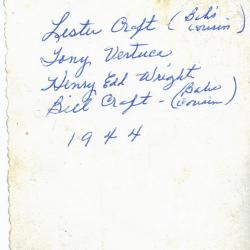 Lester Craft (Bab's cousin)
Tony Vertuca
Henry Edd Wright
Bill Craft - (Babs cousin)
1944